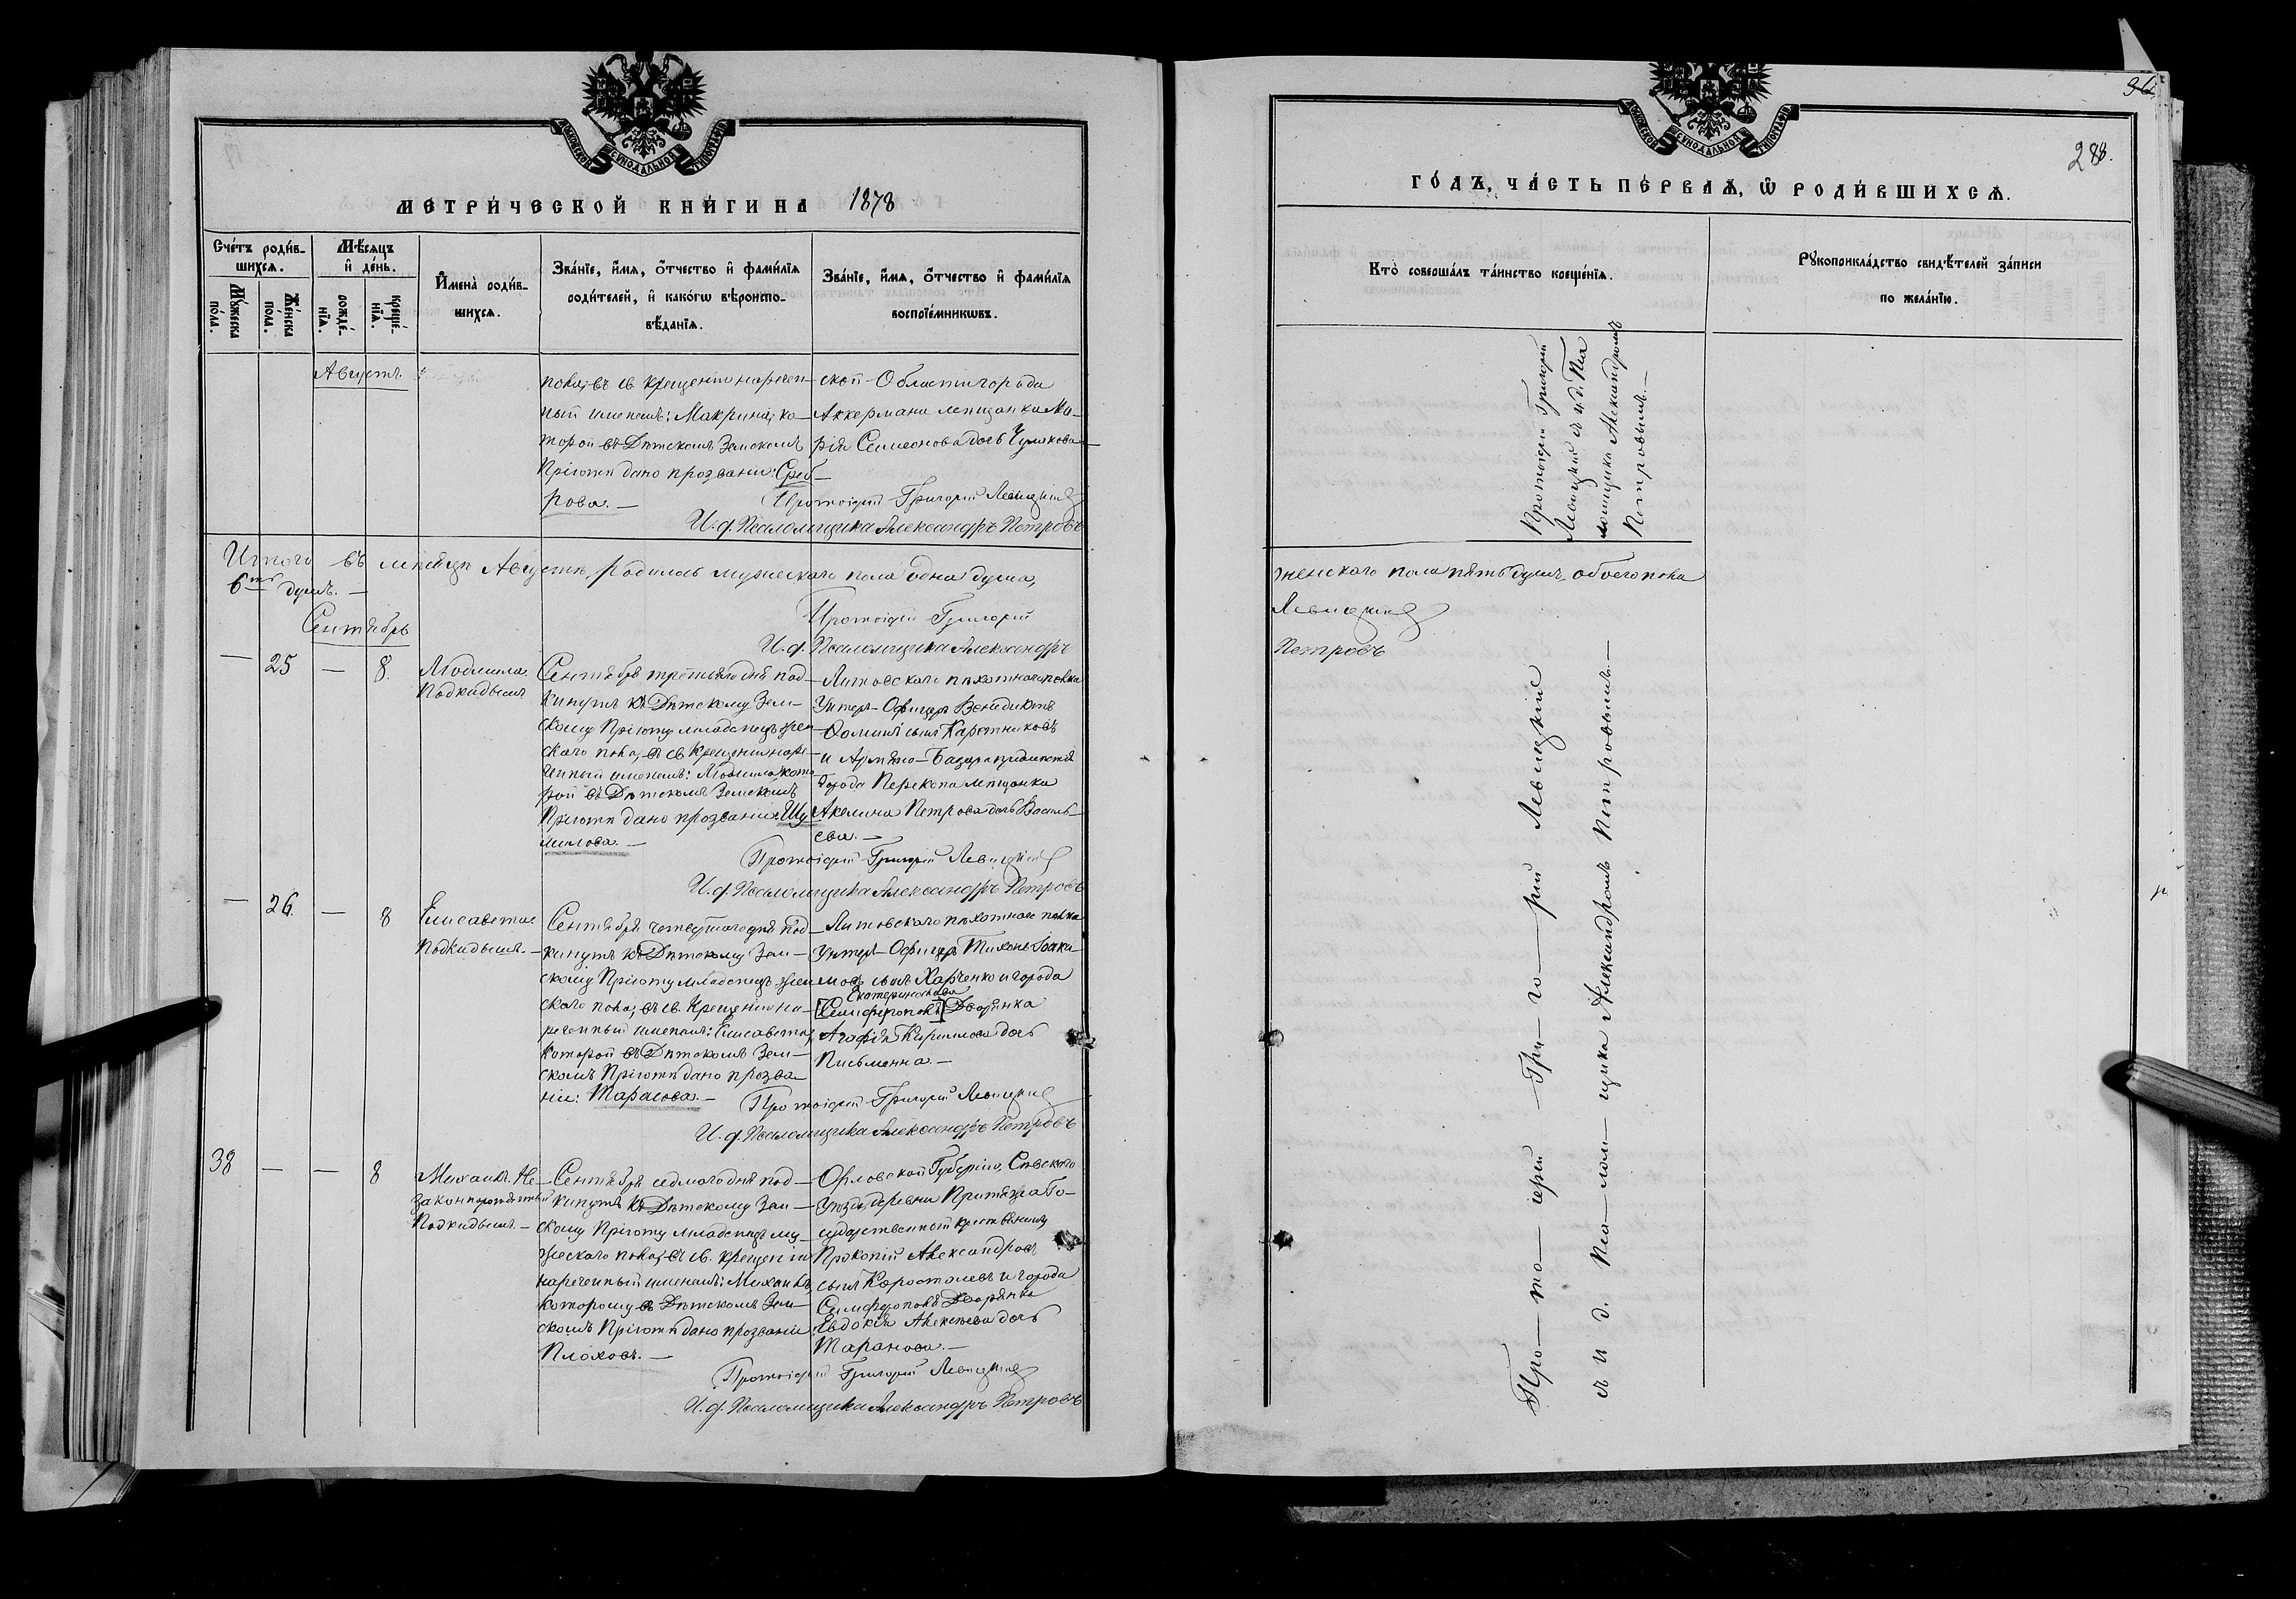 МОСКОВСКОЙ СѴНОДАЛЬНОЙ ТИПОГРАФІИ
МЕТРИ́ЧЕСКОЙ КНИ́ГИ НА 1878
Сче́тъ роди́в-
шихсѧ.
Мѣ́сѧцъ
и҆ де́нь.
И҆мена̀ роди́в-
шихсѧ.
Зва́нїе, и҆́мѧ, ѻ҆́тчество и҆ фами́лїѧ
роди́телей, и҆ како́гѡ вѣроиспо-
вѣ́данїѧ.
Зва́нїе, и҆́мѧ, ѻ҆́тчество и҆ фами́лїѧ
воспрїе́мникѡвъ.
Мꙋ́жеска
по́ла.
Же́нска
по́ла.
рожде́-
нїѧ.
креще́-
нїѧ.
Августъ
пола, въ св. крещеніи наречен-
ный именемъ: Макрина, ко-
торой въ Дѣтскомъ Земскомъ
Пріютѣ дано прозваніе: Среб-
рова. —
ской Области города
Аккермана мещанка Ма-
рія Симеонова дочь Чумакова —
Протоіерей Григорій Левицкій
И. д. Псаломщика Александръ Петровъ
Итого въ месяцѣ Августѣ, родилось мужескаго пола одна душа,
6ть душъ. —
Протоіерей Григорій
И. д. Псаломщика Александръ
Сентябрь
— 25 — 8.
Людмила.
Подкидышъ
Сентября третьяго дня под-
кинутъ къ Дѣтскому Зем-
скому Пріюту младенецъ жен
скаго пола, въ св. крещеніи наре-
ченный именемъ: Людмила, кото
рой въ Дѣтскомъ Земскомъ
Пріютѣ дано прозваніе: Шу
милова. —
Литовскаго пѣхотнаго полка
Унтеръ-Офицеръ Венедиктъ
Ѳоминъ сынъ Каретниковъ
и Армяно-Базара
города Перекопа мѣщанка
Акелина Петрова дочь Василь-
ева. —
Протоіерей Григорій Левицкій
И. д. Псаломщика Александръ Петровъ
— 26. — 8
Елисавета.
Подкидышъ. —
Сентября четвертаго дня под-
кинутъ къ Дѣтскому Зем-
скому Пріюту младенецъ жен
скаго пола, въ св. Крещеніи на-
реченный именемъ: Елисавета,
которой въ Дѣтскомъ Зем-
скомъ Пріютѣ дано прозва
ніе: Тарасова. —
Литовскаго пѣхотнаго полка
Унтеръ-Офицеръ Тихонъ Іоаки-
мовъ сынъ Харченко и города
[Симферополя] Дворянка
Агафія Кириллова дочь
Письменна. —
Протоіерей Григорій Левицкій
И. д. Псаломщика Александръ Петровъ
38 — — 8
Михаилъ. Не-
законнорожденный
Подкидышъ. —
Сентября седмаго дня под-
кинутъ къ Дѣтскому Зем-
скому Пріюту младенецъ му-
жескаго пола, въ св. крещеніи
нареченный именемъ: Михаилъ,
которому въ Дѣтскомъ Зем-
скомъ Пріютѣ дано прозваніе:
Плоховъ. —
Орловской Губерніи, Сѣвскаго
уѣзда, деревни Го-
сударственный крестьянинъ
Прокопій Александровъ
сынъ Коростелевъ и города
Симферополя Дворянка
Евдокія Алексѣева дочь
Таранова. —
Протоіерей Григорій Левицкій
И. д. Псаломщика Александръ Петровъ
36
288.
МОСКОВСКОЙ СѴНОДАЛЬНОЙ ТИПОГРАФІИ
ГО́ДЪ, ЧА́СТЬ ПЕ́РВАѦ, Ѡ҆ РОДИ́ВШИХСѦ.
Кто̀ соверша́лъ та́инство креще́нїѧ.
Рꙋкоприкла́дство свидѣ́телей за́писи
по жела́нїю.
Протоіерей Григорій
Левицкій съ и. д. Пса
ломщика Александромъ
Петровымъ. —
женскаго пола пять душъ, обоего пола
Левицкій
Петровъ
Про — то — іерей — Гри — го — рій Левицкій
съ и. д. Пса — лом — щика Александромъ Петровымъ. —